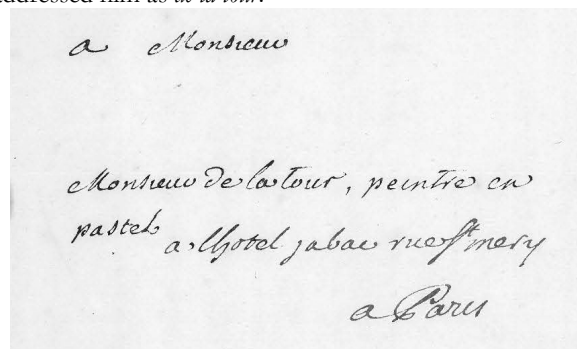 addressed him as de la tour.
a Monsieur
Monsieur de la tour, peintre en
pastel
a lhotel jabac rue St mery
a Paris